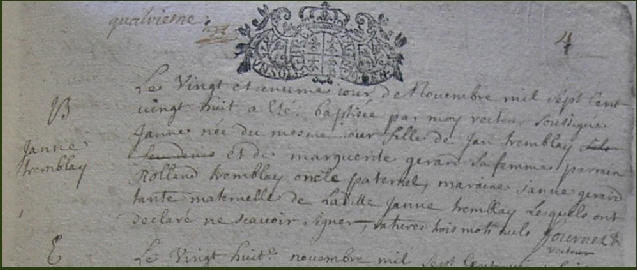 quatriesme
4
Le Vingt et enieme iour de Novembre mil sept cent
B vingt huit a Esté baptisée par moy recteur soussigne
Janne Janne née du mesme iour fille de Jan tremblay
tremblay et de marguerite gerard sa femme parrain
Rolland tremblay oncle paternel, maraine Janne gerard
tante maternelle de Laditte Janne tremblay Lesquels ont
declaré ne scavoir signer, ratures trois mots nuls
recteur
E Le Vingt huit novembre mil sept Cent